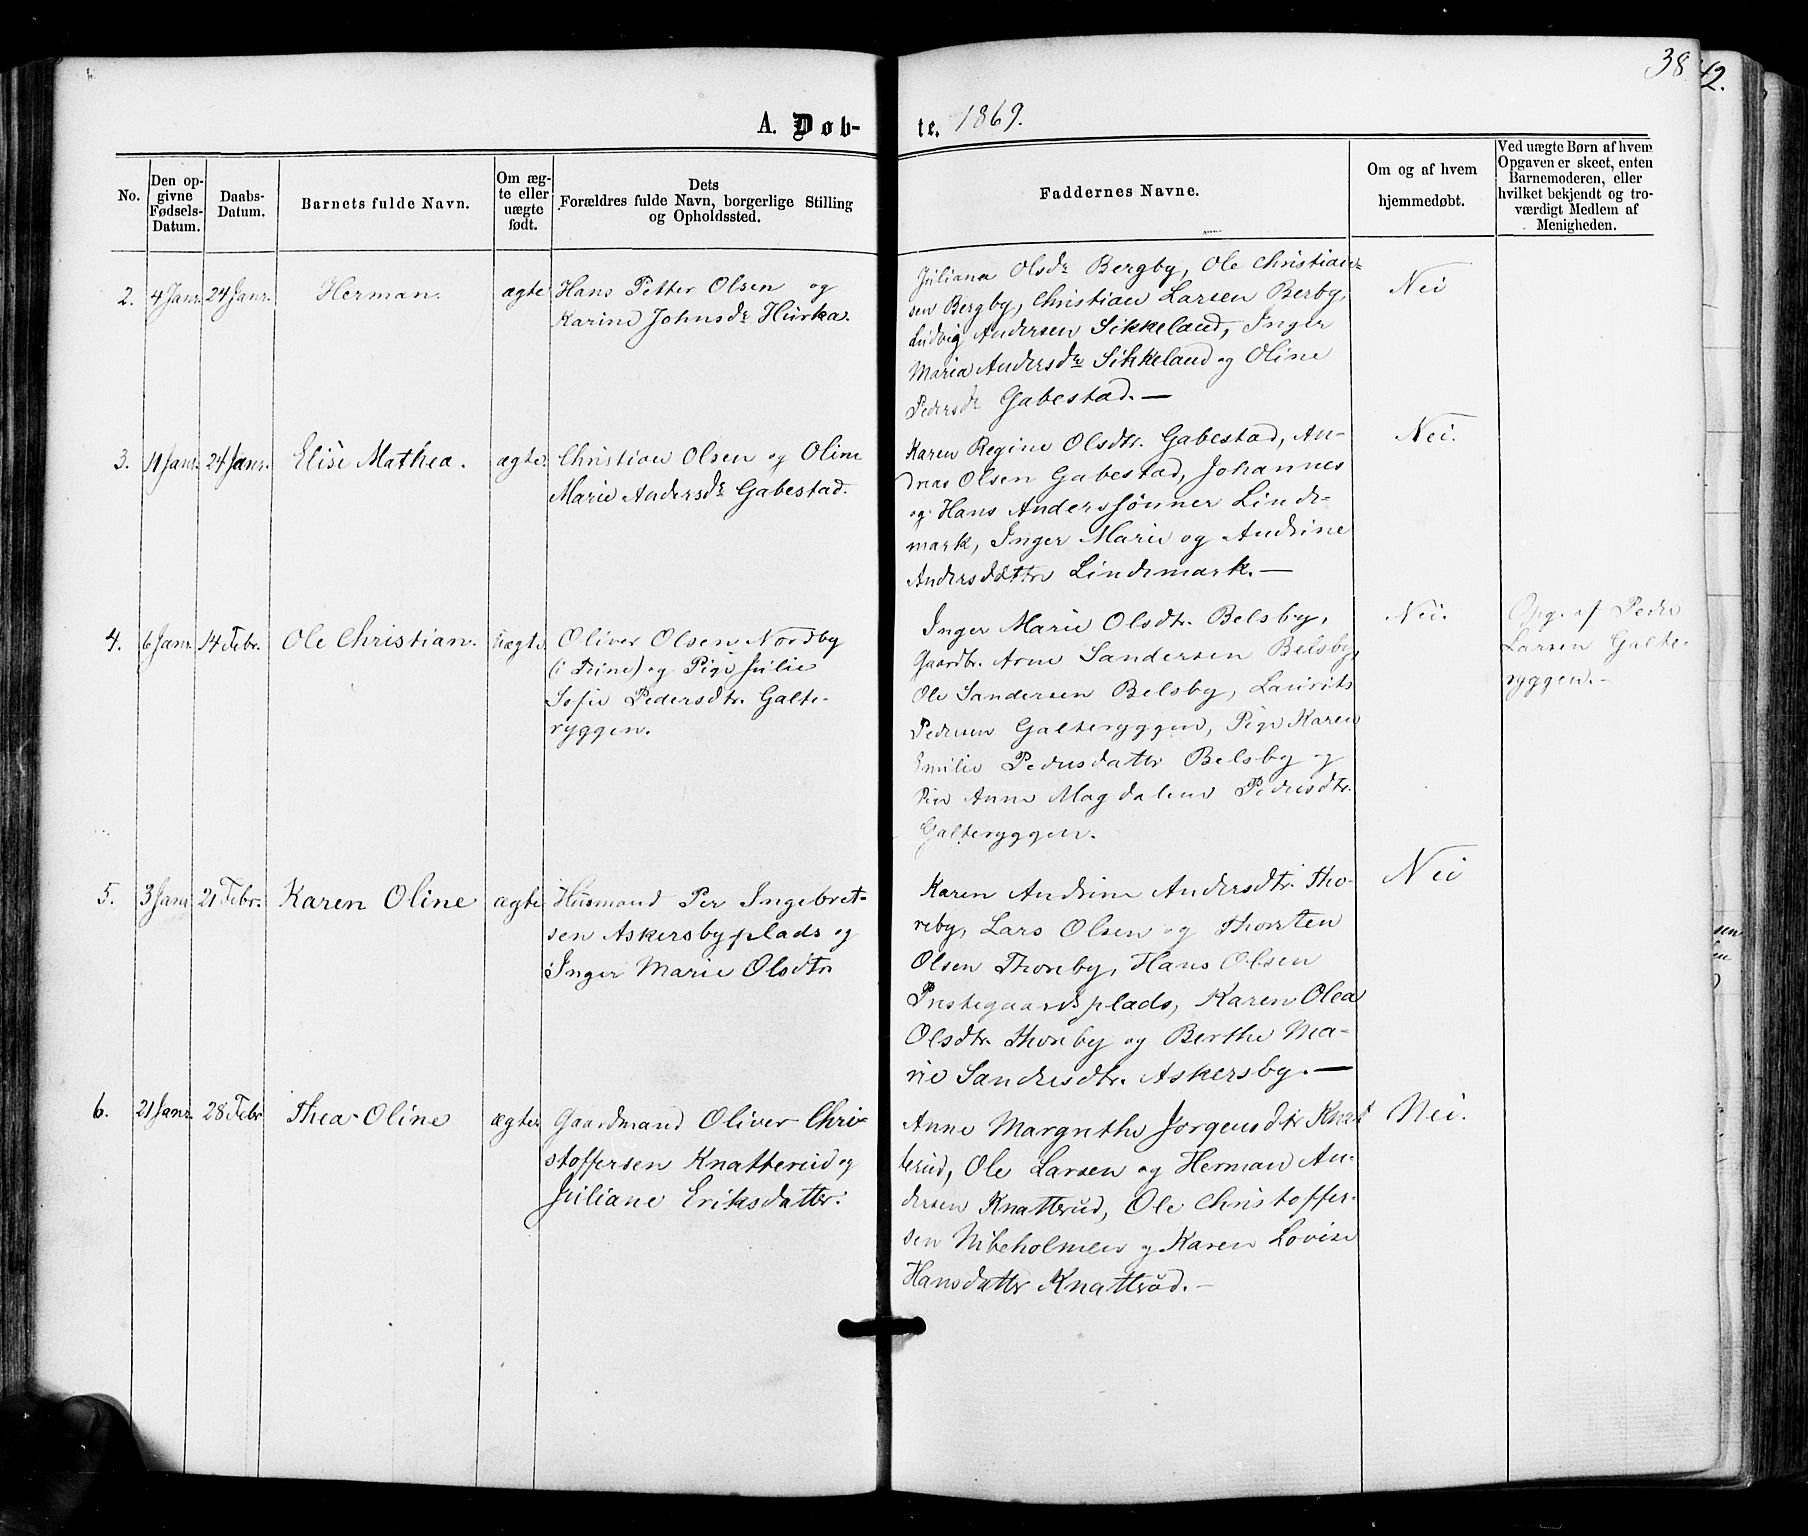 38
42.
A. Døb-
te. 1869.
No.
Den op-
givne
Fødsels-
Datum.
Daabs-
Datum.
Barnets fulde Navn.
Om æg-
te eller
uægte
født.
Dets
Forældres fulde Navn, borgerlige Stilling
og Opholdssted.
Faddernes Navne.
Om og af hvem
hjemmedøbt.
Ved uægte Børn af hvem
Opgaven er skeet, enten
Barnemoderen, eller
hvilket bekjendt og tro-
værdigt Medlem af
Menigheden.
2. 4 Janr. 24 Janr. Herman. ægte
Hans Petter Olsen og
Karine Johnsdr Hurka.
Juliana Olsdr Bergby, Ole Christian-
sen Bergby, Christian Larsen Berby,
Ludvig Andersen Sikkeland, Inger
Maria Andersdr Sikkeland og Oline
Pedersdr Gabestad. —
Nei
3. 11 Janr. 24 Janr. Elise Mathea. ægte
Christian Olsen og Oline
Marie Andersdr Gabestad.
Karen Regine Olsdtr. Gabestad, An-
dreas Olsen Gabestad, Johannes
og Hans Anderssønner Linde-
mark, Inger Marie og Andrine
Andersdøttre Lindemark. —
Nei.
4. 6 Janr. 14 Febr. Ole Christian. Uægte
Oliver Olsen Nordby
(i Trine) og Pige Julie
Sofie Pedersdtr. Galte-
ryggen.
Inger Marie Olsdtr. Belsby,
Gaardbr. Arne Sandersen Belsby,
Ole Sandersen Belsby, Laurits
Pedersen Galteryggen, Pige Karen
Emilie Pedersdatter Belsby og
Pige Anne Magdalene Pedersdtr.
Galteryggen.
Nei.
Opg. af Peder
Larsen Galte-
ryggen. -
5. 3 Janr 21 Febr. Karen Oline ægte
Husmand Per Ingebret-
sen Askersbyplads og
Inger Marie Olsdtr
Karen Andrine Andersdtr. Tho-
reby, Lars Olsen og Thorsten
Olsen Thoreby, Hans Olsen
Prestegaardsplads, Karen Olea
Olsdtr. Thoreby og Berthe Ma-
rie Sandersdtr. Askersby. —
Nei
6. 21 Janr. 28 Febr. Thea Oline ægte
Gaardmand Oliver Chri-
stoffersen Knatterud og
Juliane Eriksdatter.
Anne Margrethe Jørgensdtr Knat
terud, Ole Larsen og Herman An-
dersen Knatterud, Ole Christoffer-
sen Nibeholmen og Karen Lovise
Hansdatter Knatterød. —
Nei.